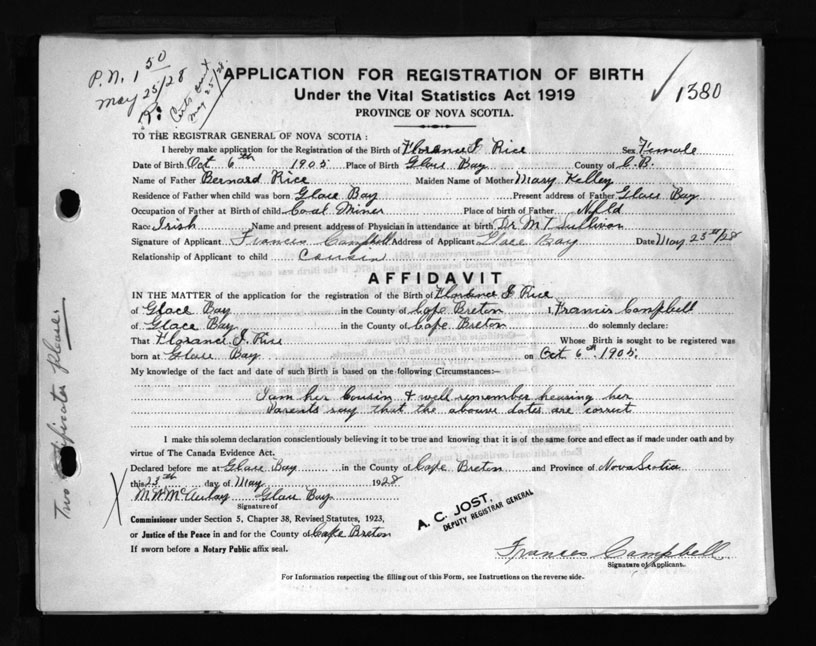 P.N. 1 50
May 25/28
Certs sent
May 25/28
APPLICATION FOR REGISTRATION OF BIRTH
1380
Under the Vital Statistics Act 1919
PROVINCE OF NOVA SCOTIA.
TO THE REGISTRAR GENERAL OF NOVA SCOTIA :
I hereby make application for the Registration of the Birth of Florance I Rice Sex Female
Date of Birth Oct 6th 1905 Place of Birth Glace Bay County of C.B.
Name of Father Bernard Rice Maiden Name of Mother Mary Kelley
Residence of Father when child was born Glace Bay Present address of Father Glace Bay
Occupation of Father at Birth of child Coal Miner Place of birth of Father Nfld
Race Irish Name and present address of Physician in attendance at birth Dr. M T Sullivan
Signature of Applicant Frances Campbell Address of Applicant Glace Bay Date May 23rd/28
Relationship of Applicant to child Cousin
AFFIDAVIT
IN THE MATTER of the application for the registration of the Birth of Florance I Rice
of Glace Bay in the County of Cape Breton I, Francis Campbell
of Glace Bay in the County of Cape Breton do solemnly declare:
That Florance I. Rice Whose Birth is sought to be registered was
born at Glace Bay on Oct 6th 1905.
My knowledge of the fact and date of such Birth is based on the following Circumstances:—
I am her Cousin & well remember hearing her
Parents say that the above dates are correct
I make this solemn declaration conscientiously believing it to be true and knowing that it is of the same force and effect as if made under oath and by
virtue of The Canada Evidence Act.
Declared before me at Glace Bay in the County of Cape Breton and Province of Nova Scotia
this 23th day of May 1928
Glace Bay
Signature of
Commissioner under Section 5, Chapter 38, Revised Statutes, 1923,
or Justice of the Peace in and for the County of Cape Breton
If sworn before a Notary Public affix seal.
A. C. JOST,
DEPUTY REGISTRAR GENERAL
Frances Campbell
Signature of Applicant.
For Information respecting the filling out of this Form, see Instructions on the reverse side.
Two Certificates please